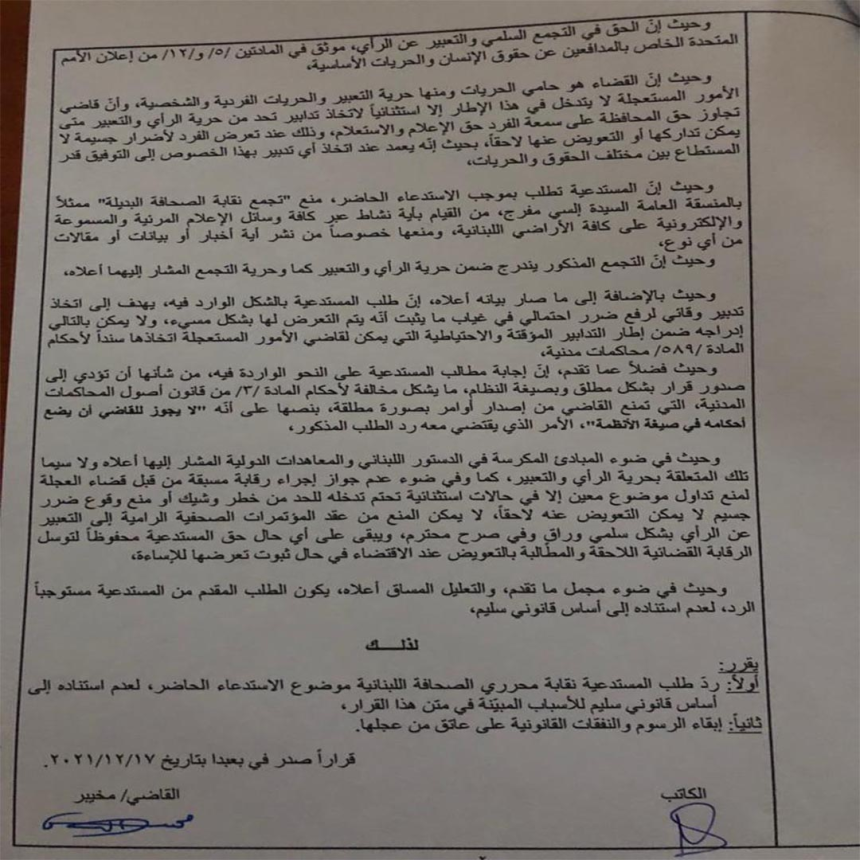 وحيث إنّ الحق في التجمع السلمي والتعبير عن الرأي، موثق في المادتين /٥/ و/١٢/ من إعلان الأمم
المتحدة الخاص بالمدافعين عن حقوق الإنسان والحريات الأساسية،
وحيث إنّ القضاء هو حامي الحريات ومنها حرية التعبير والحريات الفردية والشخصية، وأنّ قاضي
الأمور المستعجلة لا يتدخل في هذا الإطار إلا استثنائياً لاتخاذ تدابير تحد من حرية الرأي والتعبير متى
تجاوز حق المحافظة على سمعة الفرد حق الإعلام والاستعلام، وذلك عند تعرض الفرد لأضرار جسيمة لا
يمكن تداركها أو التعويض عنها لاحقاً، بحيث إنّه يعمد عند اتخاذ أي تدبير بهذا الخصوص إلى التوفيق قدر
المستطاع بين مختلف الحقوق والحريات،
وحيث إنّ المستدعية تطلب بموجب الاستدعاء الحاضر، منع "تجمع نقابة الصحافة البديلة" ممثلاً
بالمنسقة العامة السيدة إلسي مفرج، من القيام بأية نشاط عبر كافة وسائل الإعلام المرئية والمسموعة
والإلكترونية على كافة الأراضي اللبنانية، ومنعها خصوصاً من نشر أية أخبار أو بيانات أو مقالات
من أي نوع،
وحيث إنّ التجمع المذكور يندرج ضمن حرية الرأي والتعبير كما وحرية التجمع المشار إليهما أعلاه،
وحيث بالإضافة إلى ما صار بيانه أعلاه، إنّ طلب المستدعية بالشكل الوارد فيه، يهدف إلى اتخاذ
تدبير وقائي لرفع ضرر احتمالي في غياب ما يثبت أنّه يتم التعرض لها بشكل مسيء، ولا يمكن بالتالي
إدراجه ضمن إطار التدابير المؤقتة والاحتياطية التي يمكن لقاضي الأمور المستعجلة اتخاذها سنداً لأحكام
المادة /٥٨٩/ محاكمات مدنية،
وحيث فضلاً عما تقدم، إنّ إجابة مطالب المستدعية على النحو الواردة فيه، من شأنها أن تؤدي إلى
صدور قرار بشكل مطلق وبصيغة النظام، ما يشكل مخالفة لأحكام المادة /٣/ من قانون أصول المحاكمات
المدنية، التي تمنع القاضي من إصدار أوامر بصورة مطلقة، بنصها على أنّه "لا يجوز للقاضي أن يضع
أحكامه في صيغة الأنظمة"، الأمر الذي يقتضي معه رد الطلب المذكور،
وحيث في ضوء المبادئ المكرسة في الدستور اللبناني والمعاهدات الدولية المشار إليها أعلاه ولا سيما
تلك المتعلقة بحرية الرأي والتعبير، كما وفي ضوء عدم جواز إجراء رقابة مسبقة من قبل قضاء العجلة
لمنع تداول موضوع معين إلا في حالات استثنائية تحتم تدخله للحد من خطر وشيك أو منع وقوع ضرر
جسيم لا يمكن التعويض عنه لاحقاً، لا يمكن المنع من عقد المؤتمرات الصحفية الرامية إلى التعبير
عن الرأي بشكل سلمي وراق وفي صرح محترم، ويبقى على أي حال حق المستدعية محفوظاً لتوسل
الرقابة القضائية اللاحقة والمطالبة بالتعويض عند الاقتضاء في حال ثبوت تعرضها للإساءة،
وحيث في ضوء مجمل ما تقدم، والتعليل المساق أعلاه، يكون الطلب المقدم من المستدعية مستوجباً
الرد، لعدم استناده إلى أساس قانوني سليم،
لذلــــك
يقرر:
أولاً: ردّ طلب المستدعية نقابة محرري الصحافة اللبنانية موضوع الاستدعاء الحاضر، لعدم استناده إلى
أساس قانوني سليم للأسباب المبيّنة في متن هذا القرار،
ثانياً: إبقاء الرسوم والنفقات القانونية على عاتق من عجلها.
قراراً صدر في بعبدا بتاريخ ٢٠٢١/١٢/١٧.
الكاتب
القاضي/ مخيبر